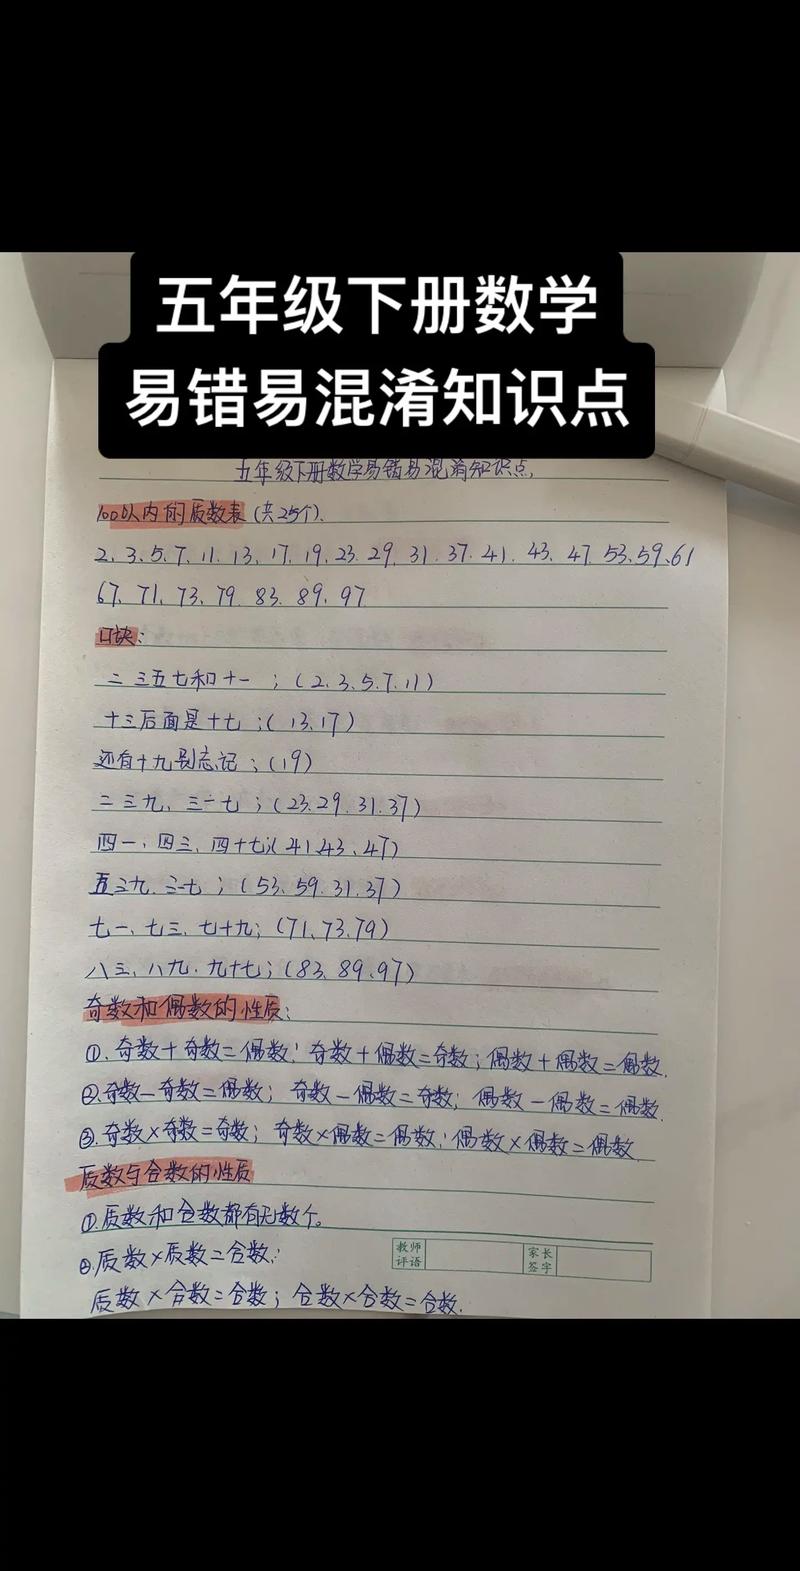 五年级下册数学
易错易混淆知识点
五年级下册数学易错易混淆知识点,
100以内的质数表(共25个)、
2、3、5、7、11、13、17、19、23、29、31、37、41、43、47、53、59、61
67、71、73、79、83、89、97
口诀:
二三五七和十一;(2、3、5、7、11)
十三后面是十七;(13、17)
还有十九别忘记;(19)
二三九、三一七;(23、29、31、37)
四一、四三、四十七;(41、43、47)
五三九、三一七;(53、59、31、37)
七一、七三、七十九;(71、73、79)
八三、八九、九十七;(83、89、97)
奇数和偶数的性质:
①、奇数+奇数=偶数;奇数+偶数=奇数;偶数+偶数=偶数、
②奇数-奇数=偶数;奇数-偶数=奇数;偶数-偶数=偶数、
③、奇数×奇数=奇数;奇数×偶数=偶数;偶数×偶数=偶数、
质数与合数的性质
①、质数和合数都有无数个。
②、质数×质数=合数;
教师评语
家长签字
质数×合数=合数;合数×合数=合数、